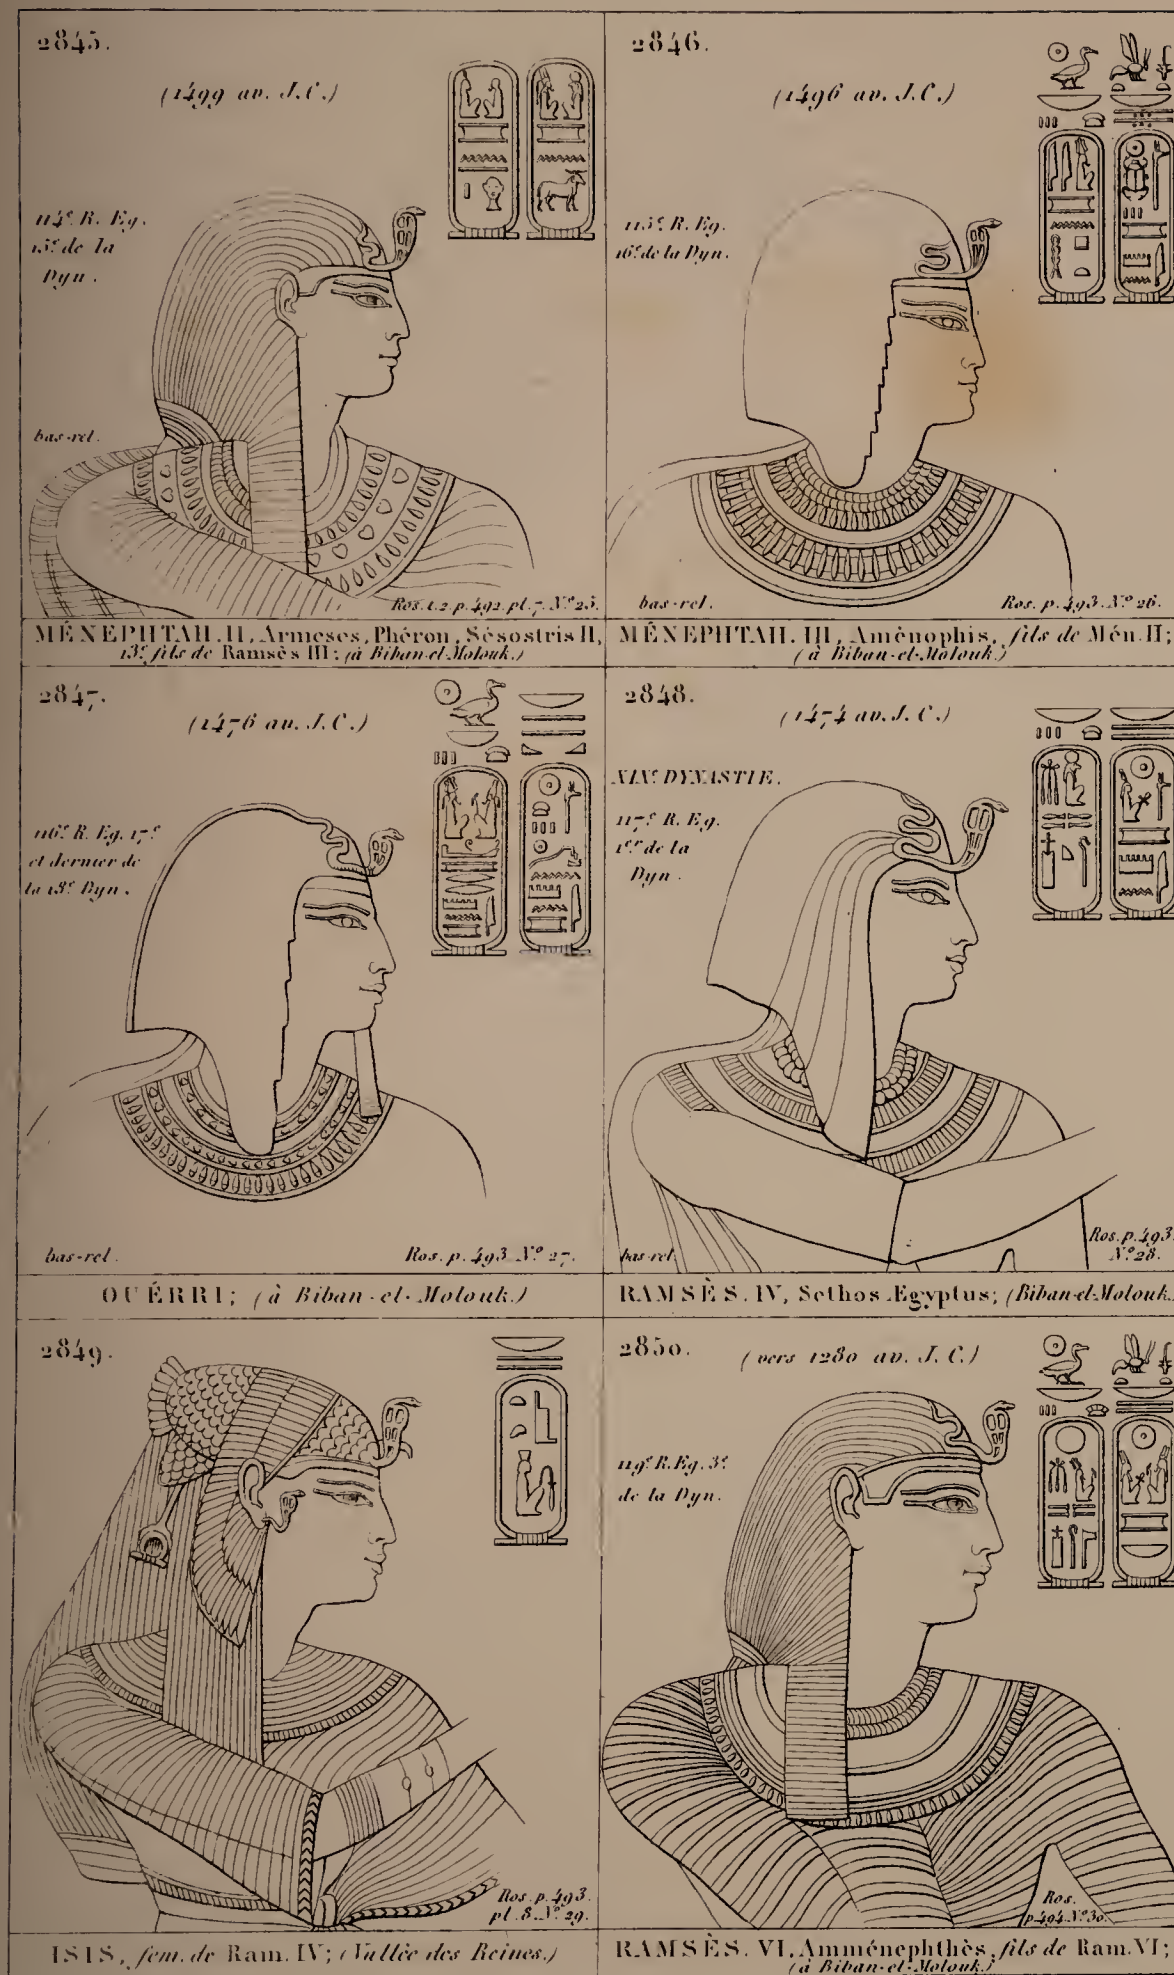 2845.
(1499 av. J.C.)
114.e R. Eg.
15.e de la
Dyn.
bas-rel.
Ros. t. 2. p. 492. pl. 7. N.o 25.
MÉNEPHTAH. II, Armesès, Phéron, Sésostris II,
13.e fils de Ramsès III; (à Biban-el-Molouk.)
2846.
(1496 av. J.C.)
115.e R. Eg.
16.e de la Dyn.
bas-rel.
Ros. p. 493. N.o 26.
MÉNEPHTAH. III, Aménophis, fils de Mén. II;
(à Biban-el-Molouk.)
2847.
(1476 av. J.C.)
116.e R. Eg. 17.e
et dernier de
la 18.e Dyn.
bas-rel.
Ros. p. 493. N.o 27.
OUÉRRI; (à Biban-el-Molouk.)
2848.
(1474 av. J.C.)
XIX.e DYNASTIE.
117.e R. Eg.
1.er de la
Dyn.
bas-rel.
Ros. p. 493.
N.o 28.
RAMSÈS. IV, Sethos Egyptus; (Biban-el-Molouk.)
2849.
Ros. p. 493.
pl. 8. N.o 29.
ISIS, fem. de Ram. IV; (Vallée des Reines.)
2850.
(vers 1280 av. J.C.)
119.e R. Eg. 3.e
de la Dyn.
Ros.
p. 494. N.o 30.
RAMSÈS. VI, Amménephthès, fils de Ram. VI;
(à Biban-el-Molouk.)